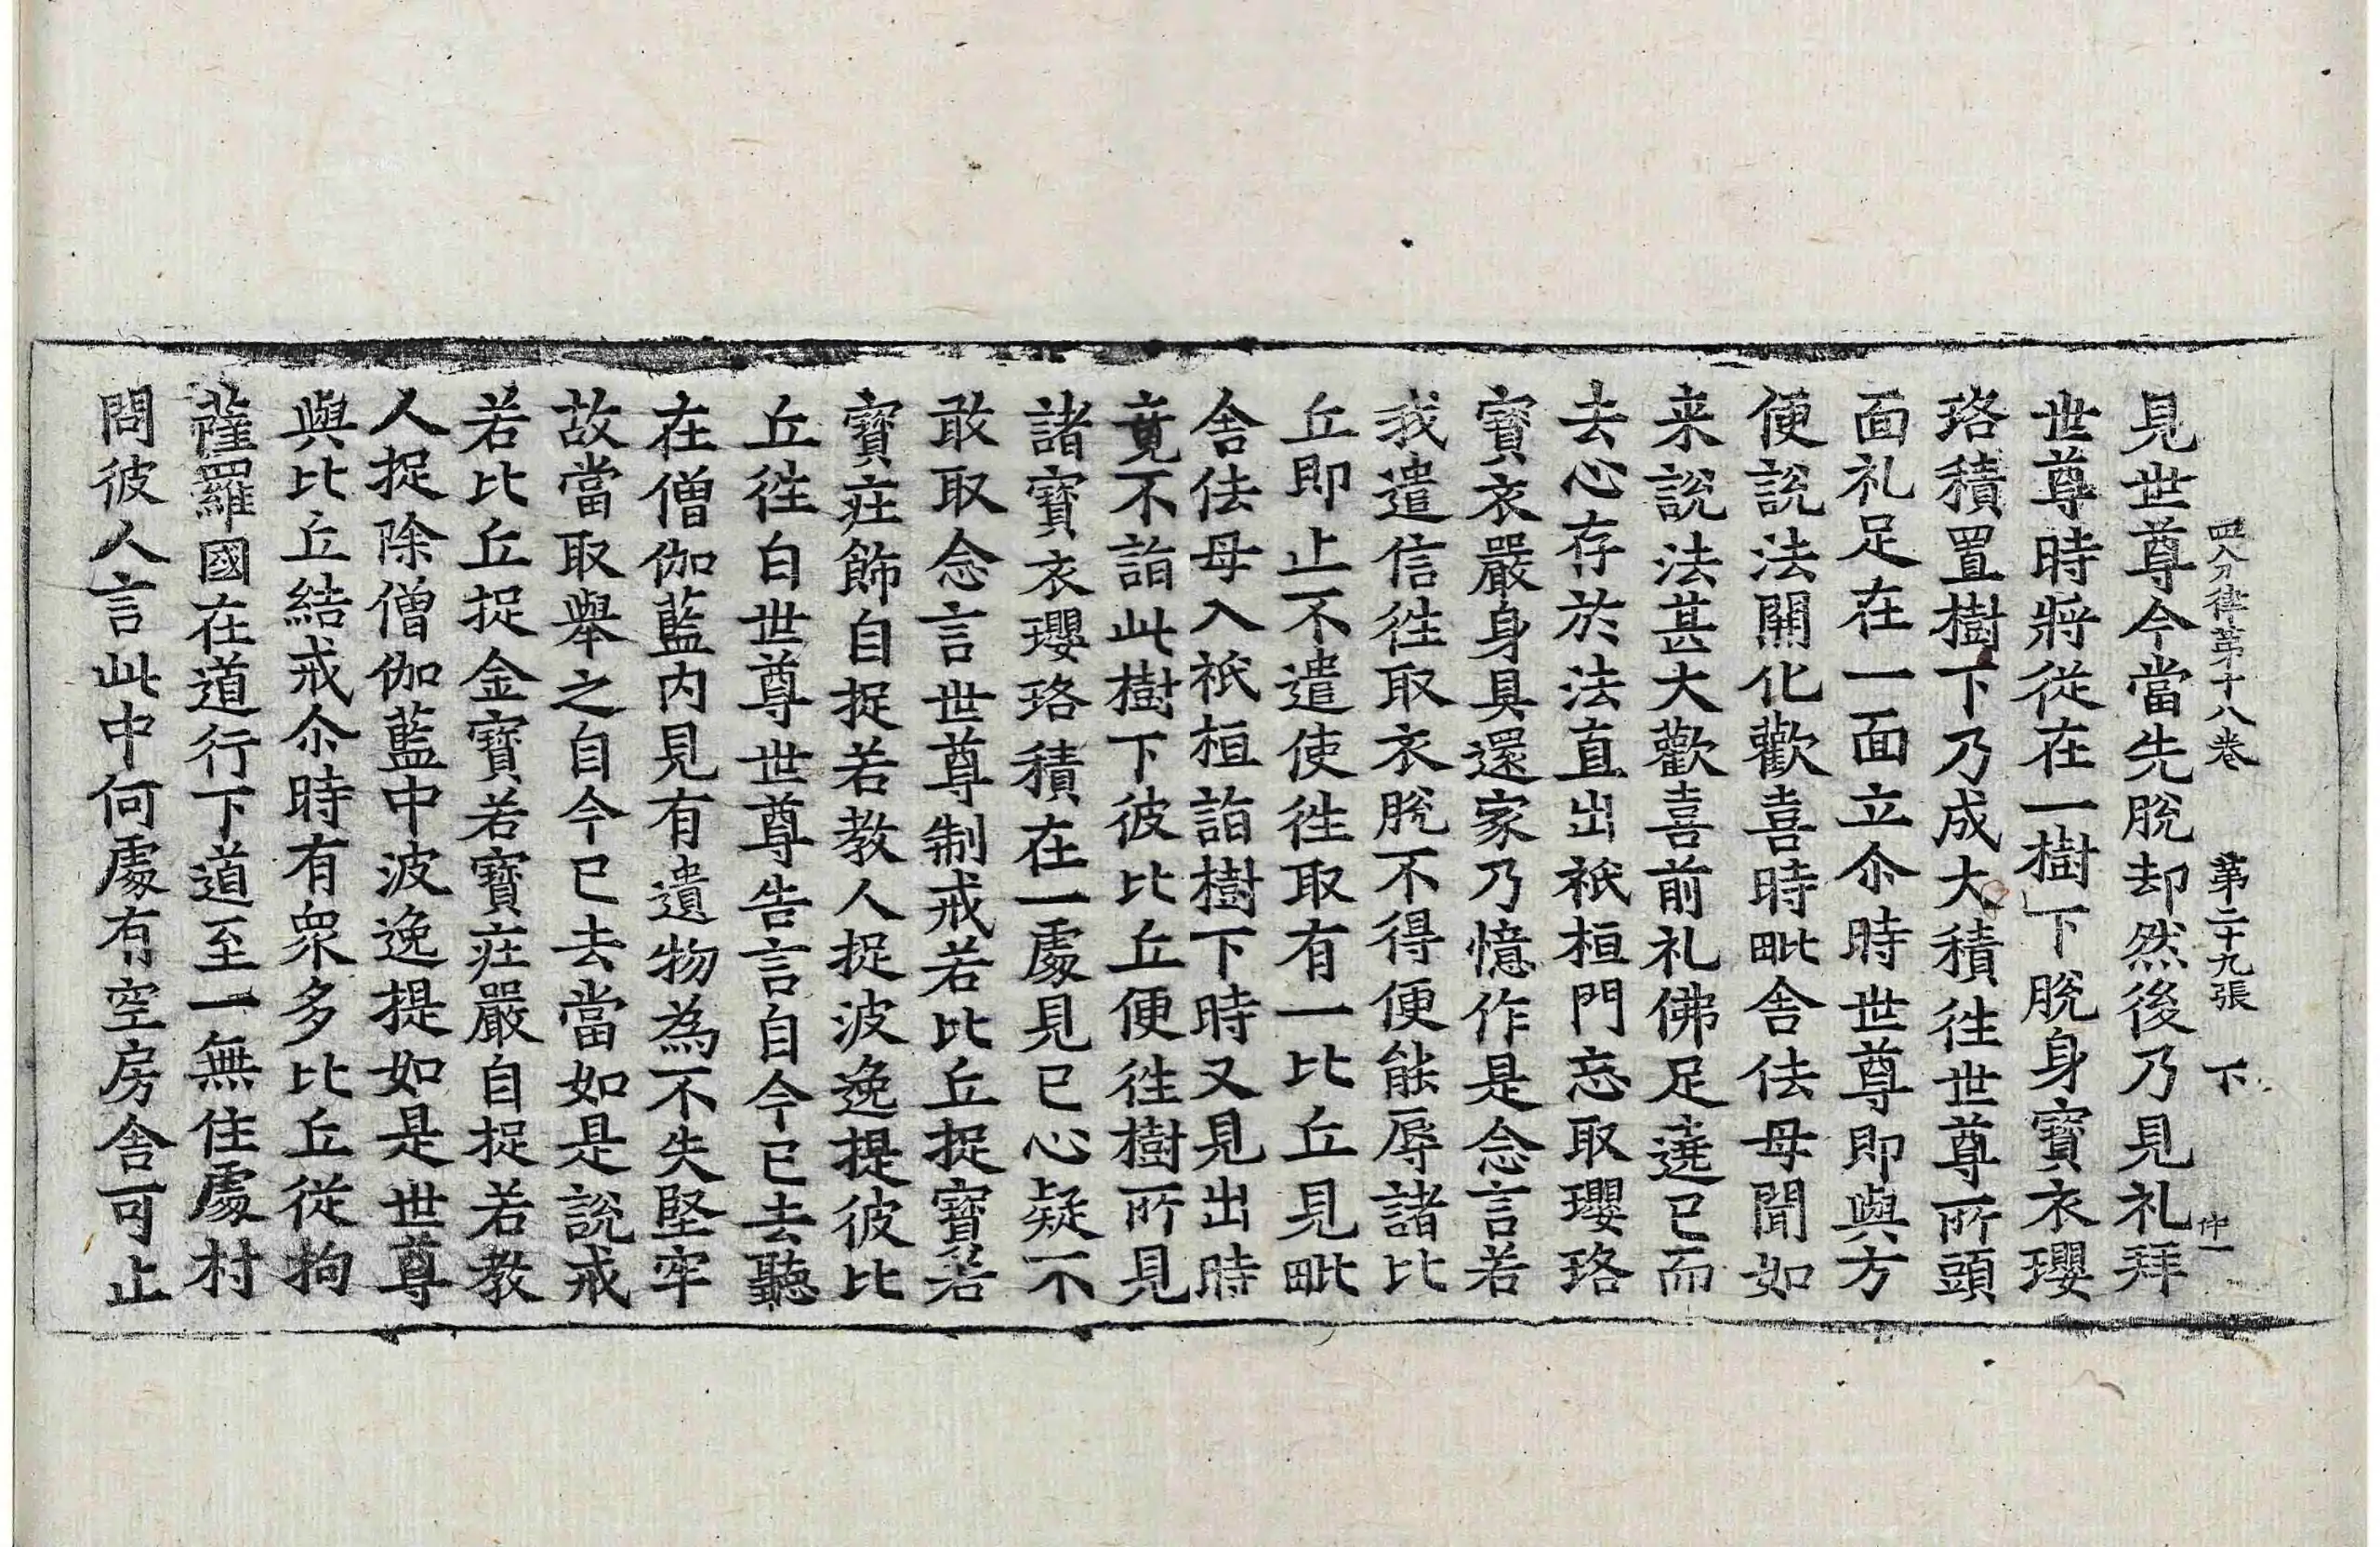 四分律第十八卷 第二十九張 下
見世尊今當先脫却然後乃見礼拜
世尊時將從在一樹下脫身寶衣瓔
珞積置樹下乃成大積徃世尊所頭
面礼足在一面立尒時世尊即與方
便說法開化歡喜時毗舍佉母聞如
来說法甚大歡喜前礼佛足遶已而
去心存於法直出祇桓門忘取瓔珞
寶衣嚴身具還家乃憶作是念言若
我遣信徃取衣脫不得便能辱諸比
丘即止不遣使徃取有一比丘見毗
舍佉母入祇桓詣樹下時又見出時
竟不詣此樹下彼比丘便徃樹所見
諸寶衣瓔珞積在一處見已心疑不
敢取念言世尊制戒若比丘捉寶若
寶莊飾自捉若教人捉波逸提彼比
丘徃白世尊世尊告言自今已去聽
在僧伽藍內見有遺物為不失堅牢
故當取舉之自今已去當如是說戒
若比丘捉金寶若寶莊嚴自捉若教
人捉除僧伽藍中波逸提如是世尊
與比丘結戒尒時有衆多比丘從拘
薩羅國在道行下道至一無住處村
問彼人言此中何處有空房舍可止